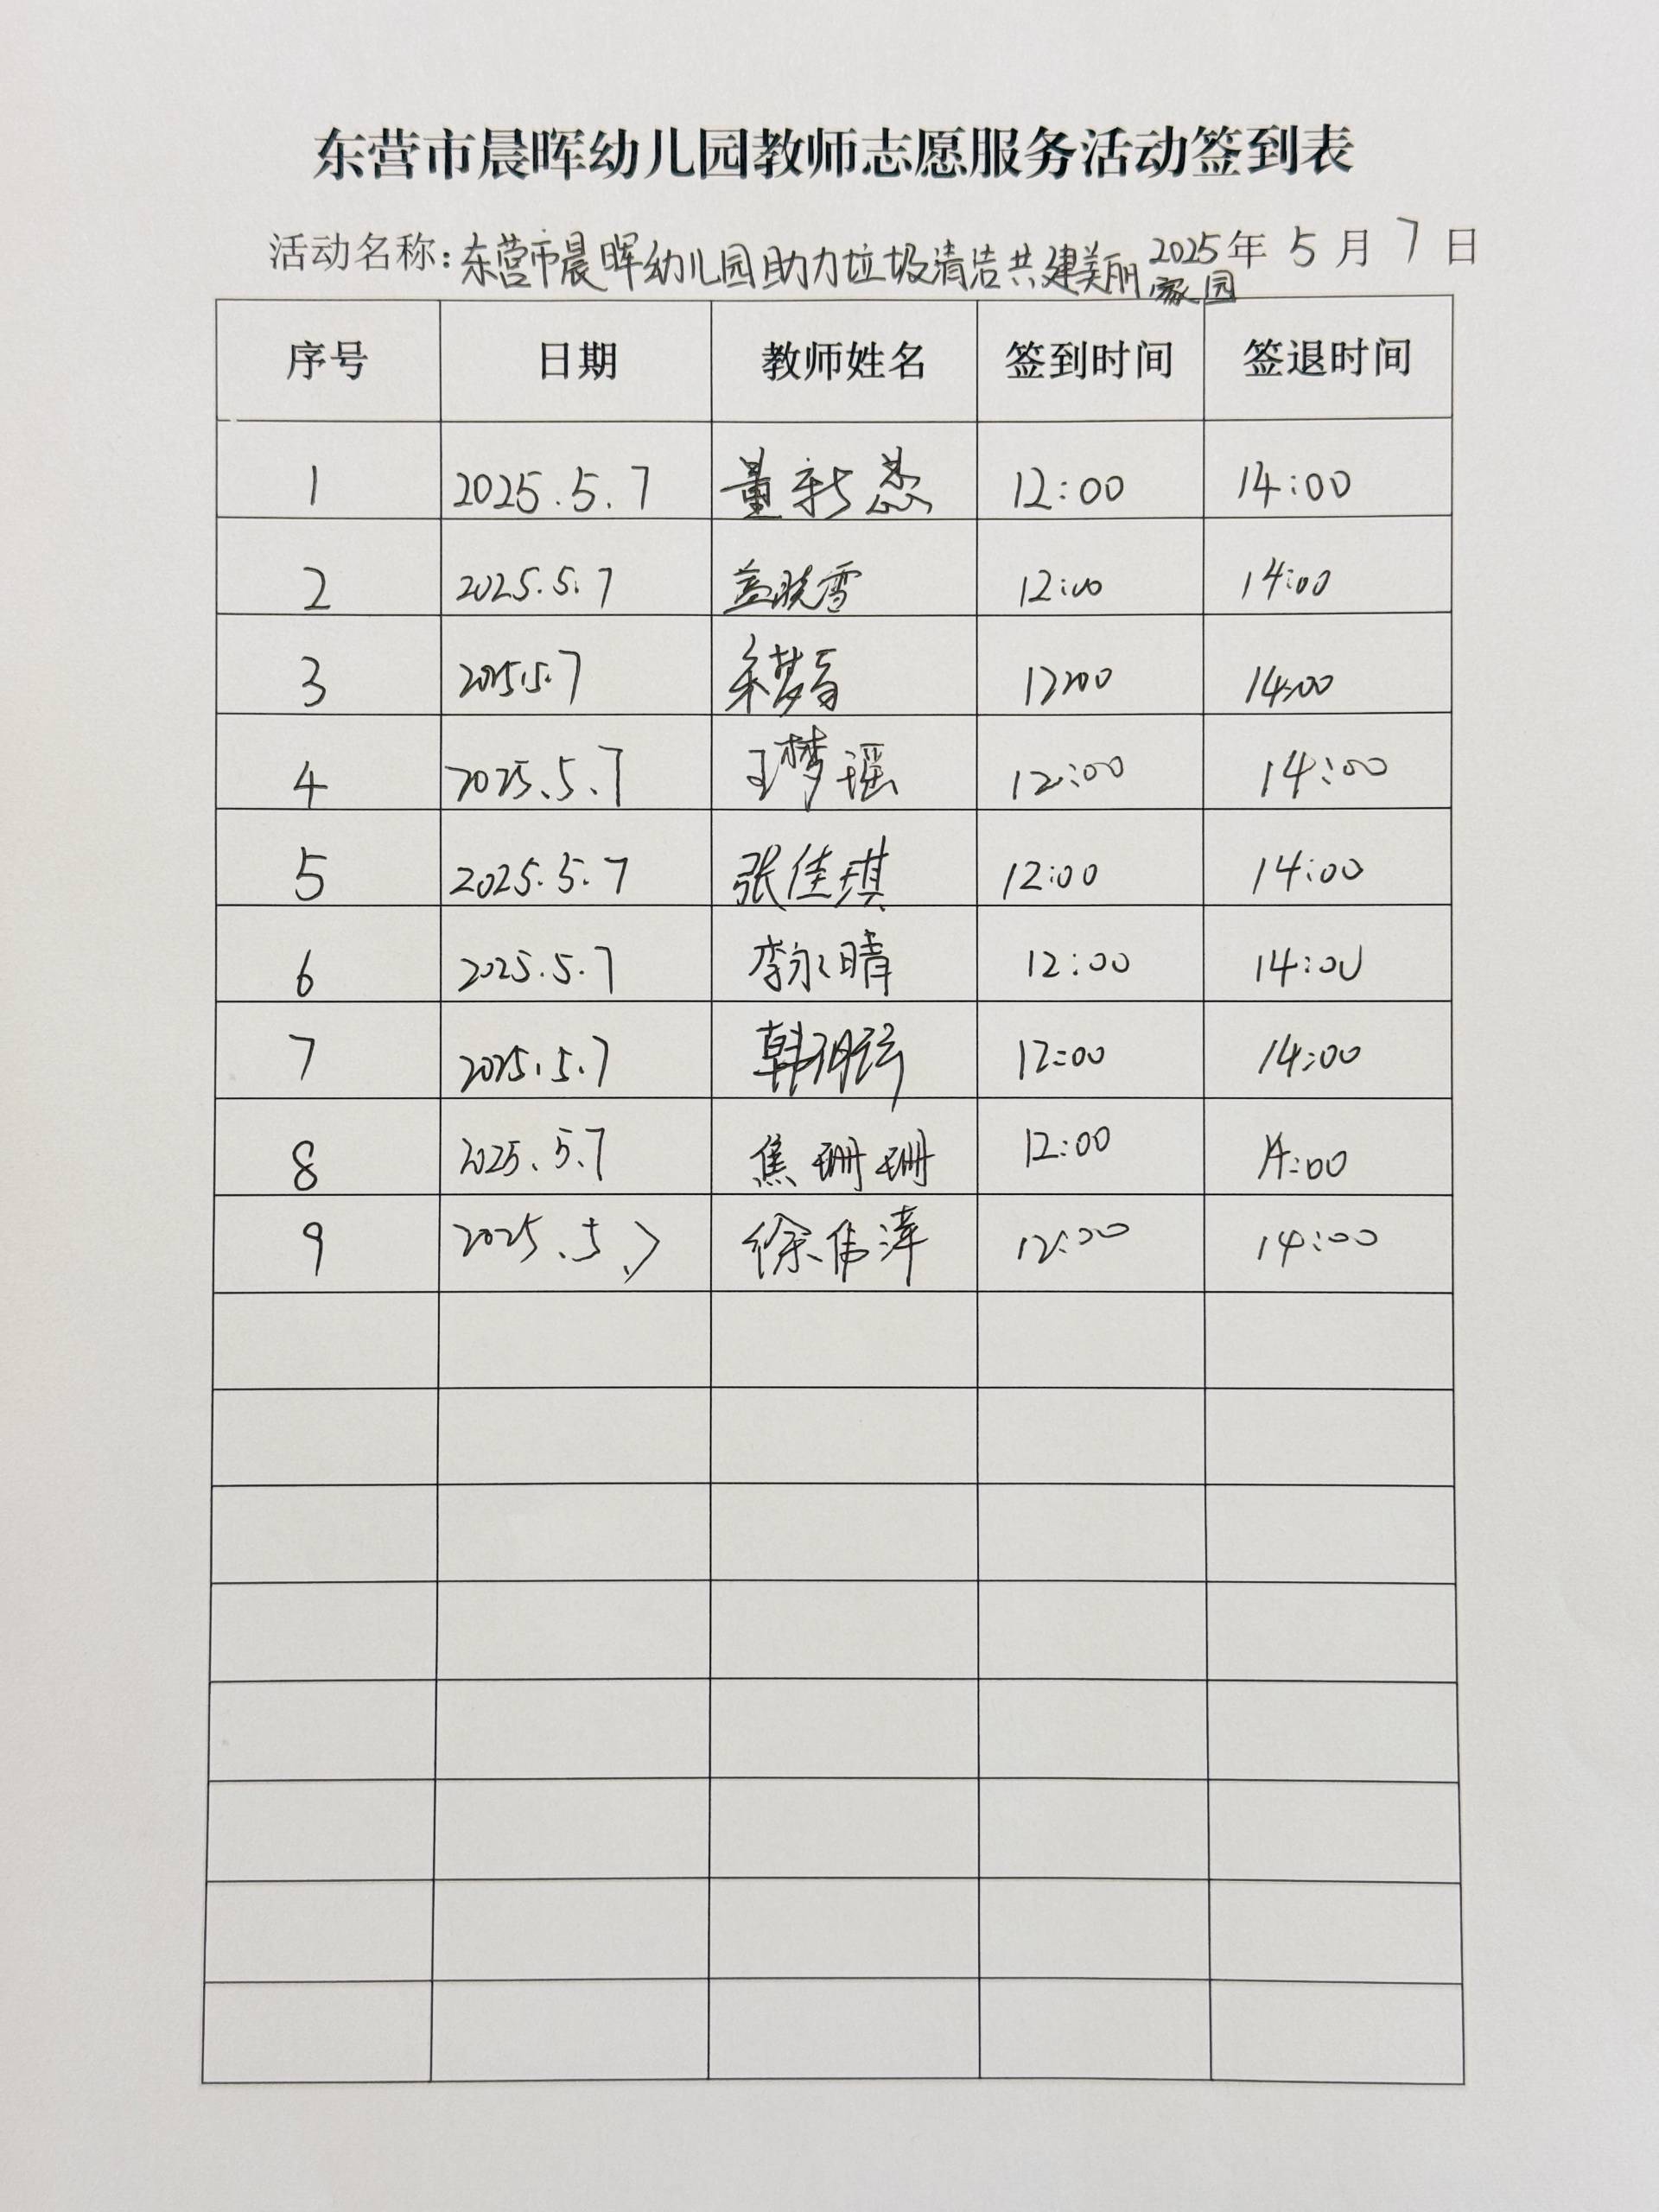 东营市晨晖幼儿园教师志愿服务活动签到表
活动名称:东营市晨晖幼儿园助力垃圾清洁共建美丽家园 2025年5月7日
序号 日期 教师姓名 签到时间 签退时间
1 2025.5.7 董新 12:00 14:00
2 2025.5.7 盖晓雪 12:00 14:00
3 2025.5.7 12:00 14:00
4 2025.5.7 王梦瑶 12:00 14:00
5 2025.5.7 张佳琪 12:00 14:00
6 2025.5.7 李永晴 12:00 14:00
7 2025.5.7 韩 12:00 14:00
8 2025.5.7 焦珊珊 12:00 14:00
9 2025.5.7 徐伟萍 12:00 14:00